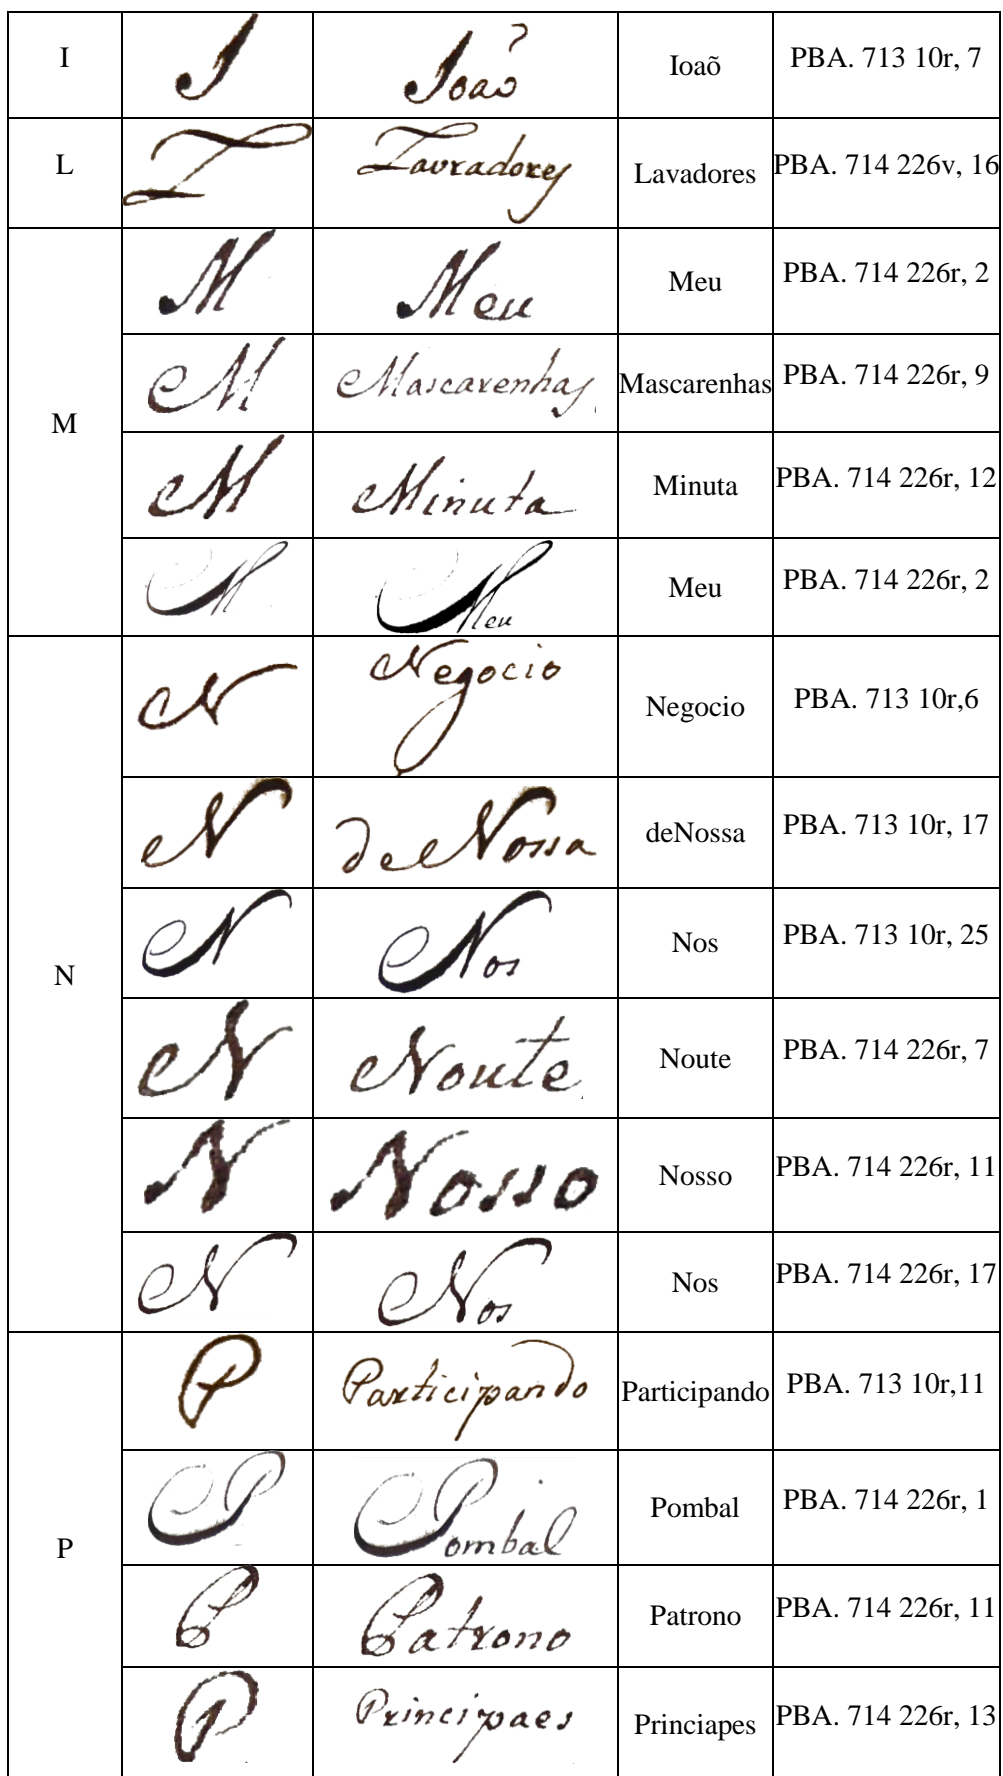 I I Ioaõ Ioaõ PBA. 713 10r, 7
L L Lavradores Lavadores PBA. 714 226v, 16
M M Meu Meu PBA. 714 226r, 2
M Mascarenhas Mascarenhas PBA. 714 226r, 9
M Minuta Minuta PBA. 714 226r, 12
M Meu Meu PBA. 714 226r, 2
N N Negocio Negocio PBA. 713 10r,6
N deNossa deNossa PBA. 713 10r, 17
N Nos Nos PBA. 713 10r, 25
N Noute Noute PBA. 714 226r, 7
N Nosso Nosso PBA. 714 226r, 11
N Nos Nos PBA. 714 226r, 17
P P Participando Participando PBA. 713 10r,11
P Pombal Pombal PBA. 714 226r, 1
P Patrono Patrono PBA. 714 226r, 11
P Principaes Princiapes PBA. 714 226r, 13